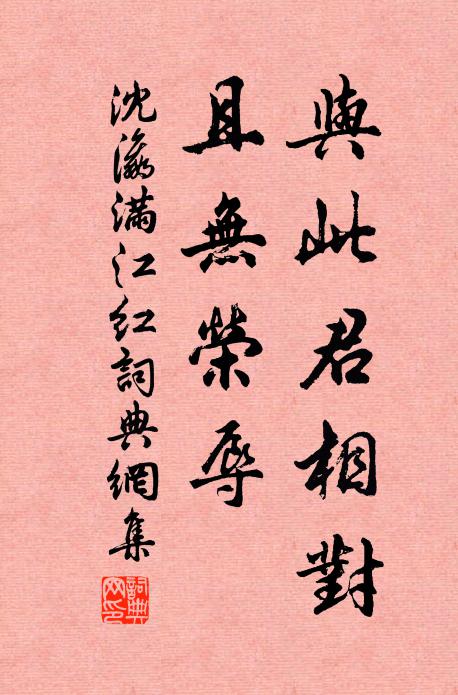 與此君相對
且無榮辱
沈瀛滿江紅詞典網集
詞典網印